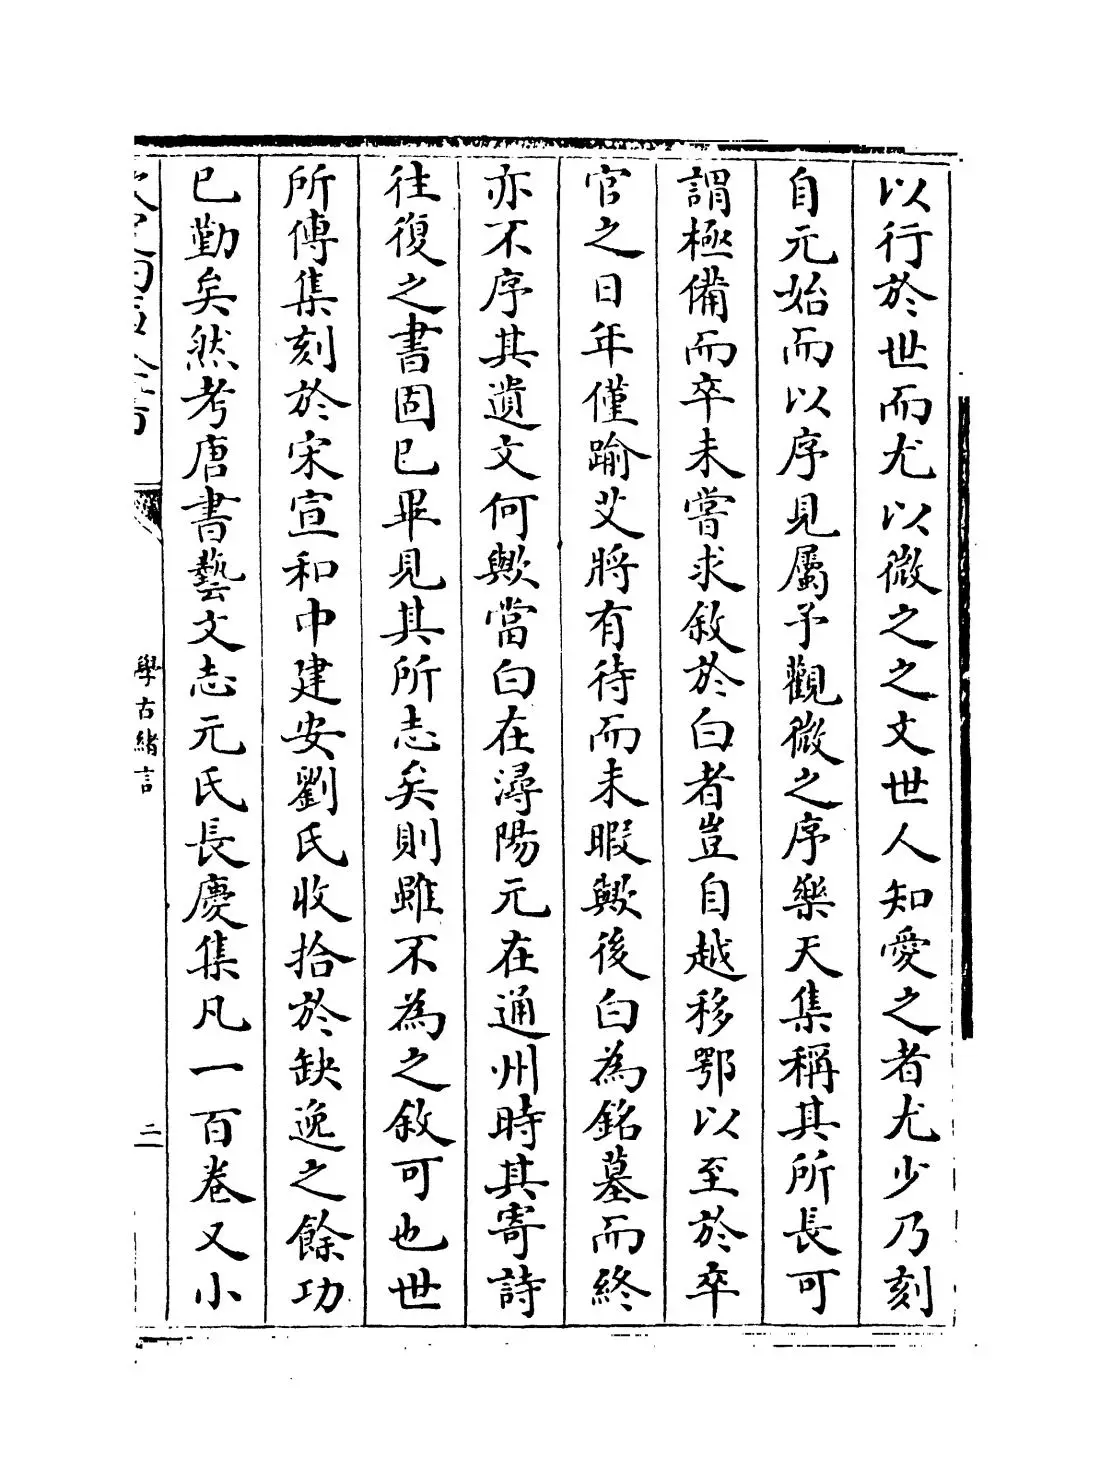 以行於世而尤以微之之文世人知愛之者尤少乃刻
自元始而以序見屬予觀微之序樂天集稱其所長可
謂極備而卒未嘗求敘於白者豈自越移鄂以至於卒
官之日年僅踰艾將有待而未暇歟後白為銘墓而終
亦不序其遺文何歟當白在潯陽元在通州時其寄詩
往復之書固已畢見其所志矣則雖不為之敘可也世
所傳集刻於宋宣和中建安劉氏收拾於缺逸之餘功
已勤矣然考唐書藝文志元氏長慶集凡一百卷又小
學古緒言
二